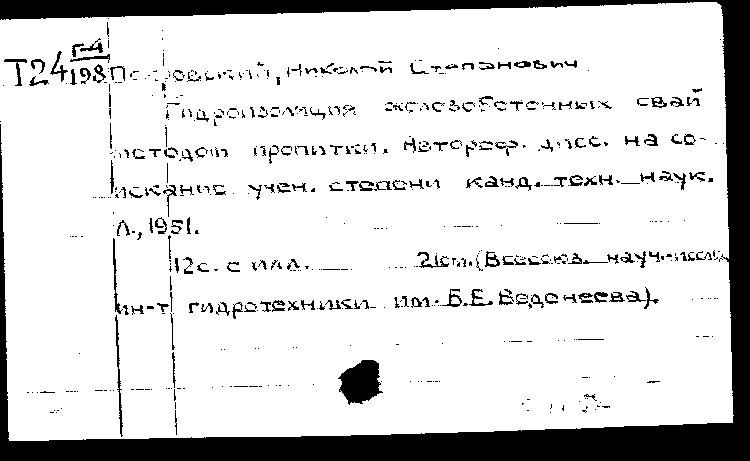 Г-4
Т24 198
Покровский, Николай Степанович
Гидроизоляция железобетонных свай
методом пропитки. Автореф. дисс. на со-
искание учен. степени канд. техн. наук.
Л., 1951.
12с. с илл. 21см. (Всесоюз. науч.-исслед.
ин-т гидротехники им. Б.Е. Веденеева).